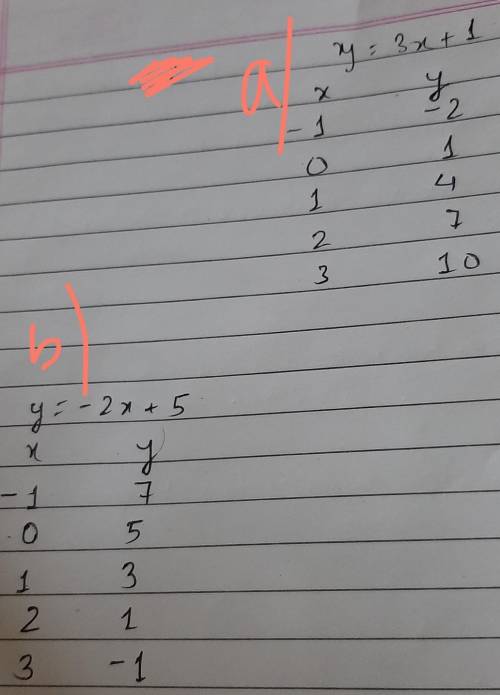 a)
y = 3x + 1
x y
-1 -2
0 1
1 4
2 7
3 10
b)
y = -2x + 5
x y
-1 7
0 5
1 3
2 1
3 -1